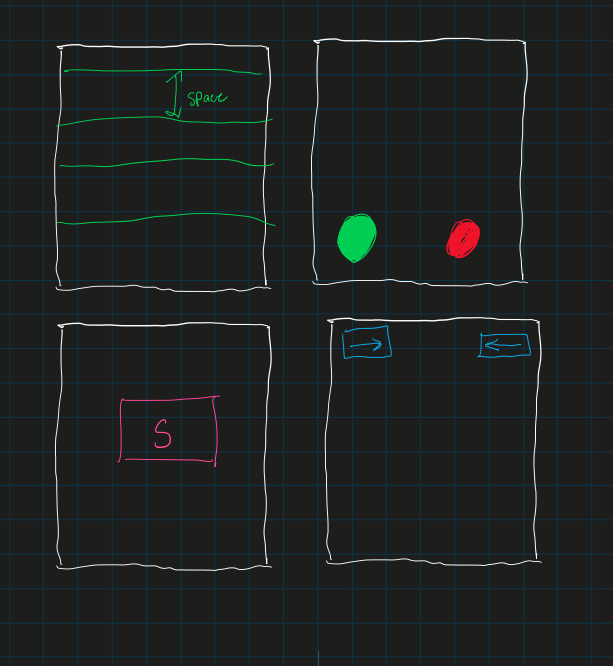 space
S